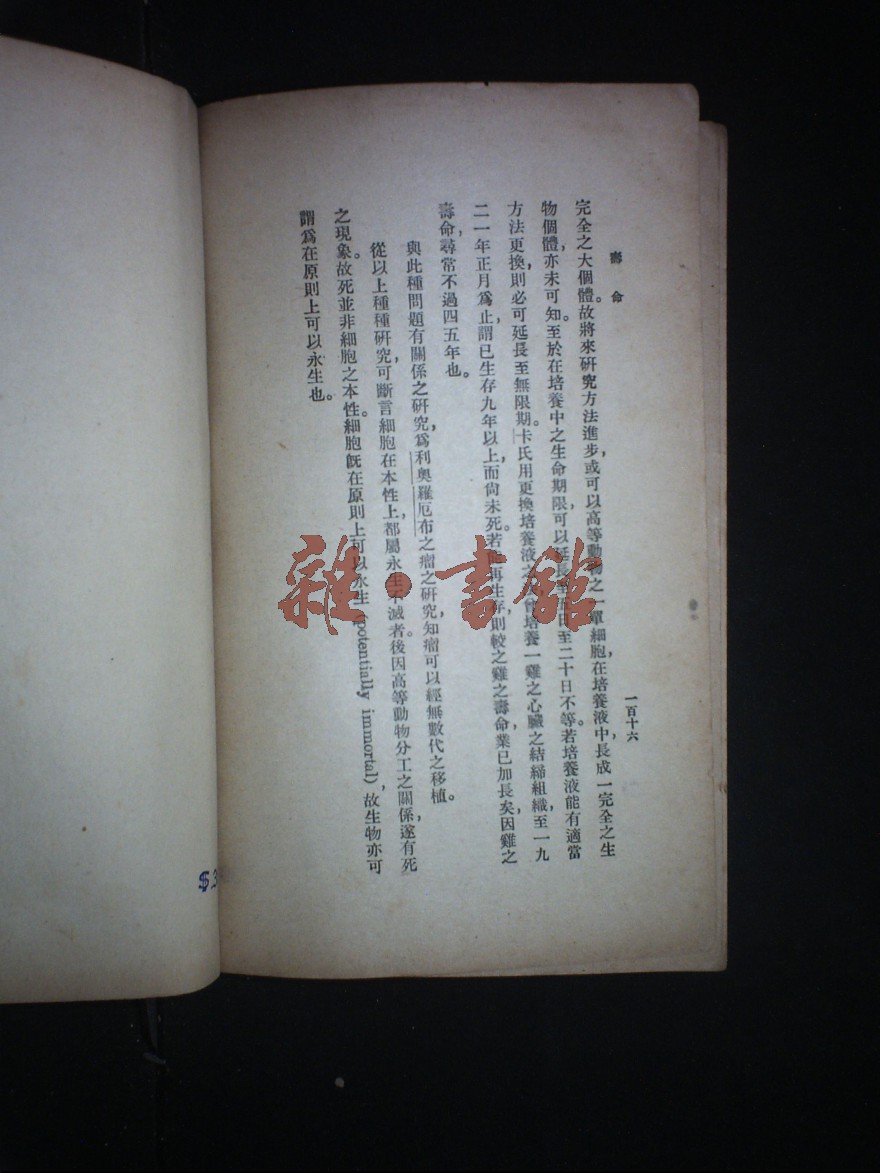 壽命
一百十六
完全之大個體。故將來研究方法進步，或可以高等動物之一單細胞，在培養液中，長成一完全之生
物個體，亦未可知。至於在培養中之生命期限，可以延長至五日至二十日不等。若培養液能有適當
方法更換，則必可延長至無限期。卡氏用更換培養液之法，曾培養一雞之心臟之結締組織，至一九
二一年正月爲止，謂已生存九年以上，而尚未死。若能再生存，則較之雞之壽命，業已加長矣，因雞之
壽命，尋常不過四五年也。
與此種問題有關係之研究，爲利奧羅厄布之瘤之研究，知瘤可以經無數代之移植。
從以上種種研究，可斷言細胞在本性上，都屬永生不滅者。後因高等動物分工之關係，遂有死
之現象。故死並非細胞之本性。細胞旣在原則上可以永生 (potentially immortal)，故生物亦可
謂爲在原則上可以永生也。
雜·書館
$3